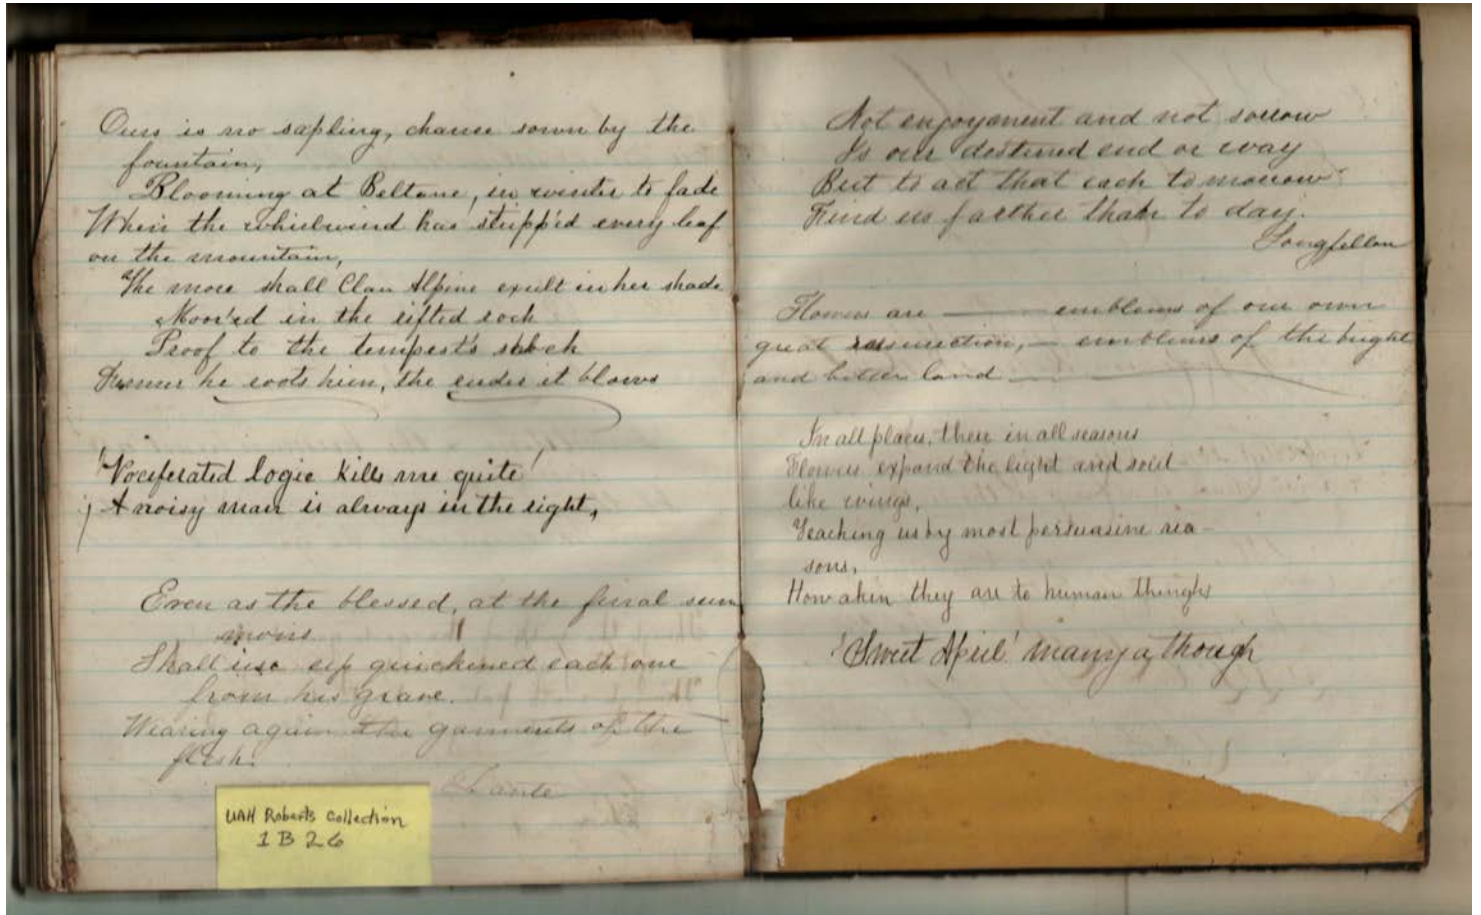 Ours is no sapling, chance sown by the
fountain,
Blooming at Beltane, in winter to fade
When the whirlwind has stripp'd every leaf
on the mountain,
The more shall Clan Alpine exult in her shade
Moor'd in the rifted rock
Proof to the tempest's shock
Firmer he roots him, the ruder it blows
"Vociferated logic kills me quite
A noisy man is always in the right,
Even as the blessed, at the final sum
mons
Shall rise up quickened each one
from his grave.
Wearing again the garments of the
flesh.
Dante
UAH Roberts Collection
1B26
Not enjoyment and not sorrow
Is our destined end or way
But to act that each tomorrow
Find us farther than to day.
Longfellow
Flowers are — emblems of our own
great resurrection, — emblems of the bright
and better land —
In all places, then in all seasons
Flowers expand the light and soul
like wings,
Teaching us by most persuasive rea-
sons,
How akin they are to human things
'Sweet April' many a though